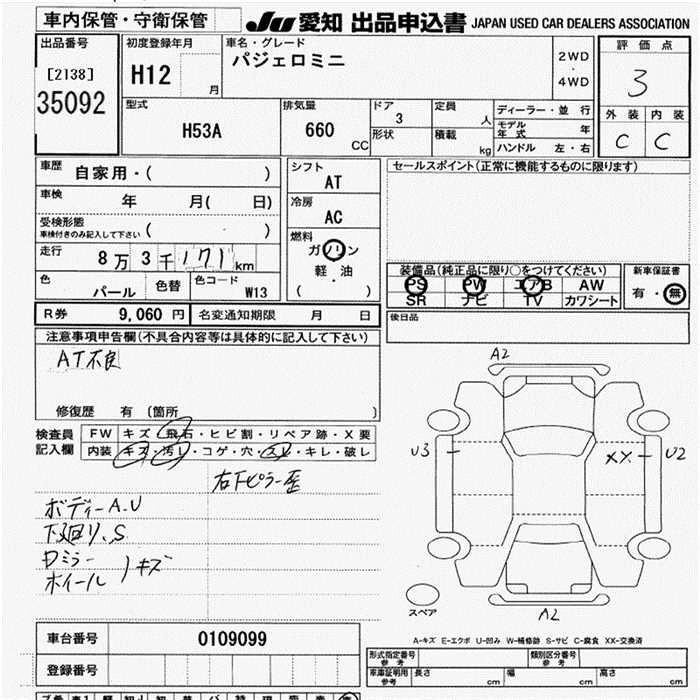 車内保管・守衛保管
JU 愛知 出品申込書 JAPAN USED CAR DEALERS ASSOCIATION
出品番号
[2138]
35092
初度登録年月
H12 月
車名・グレード
パジェロミニ
2WD
・
4WD
評価点
3
外装 内装
C C
型式
H53A
排気量
660 CC
ドア
3
形状
定員
人
積載
kg
ディーラー・並 行
モデル年式 年
ハンドル 左・右
車歴 自家用・( )
車検 年 月( 日)
受検形態
車検付きのみ記入して下さい ( )
走行 8万3千171km
色 パール 色替
色コード W13
シフト
AT
冷房
AC
燃料
ガソリン
軽・油
( )
セールスポイント(正常に機能するものに限ります)
装備品(純正品に限り○をつけてください)
PS PW エアB AW
SR ナビ TV カワシート
新車保証書
有・無
後日品
R券 9,060 円
名変通知期限 月 日
注意事項申告欄(不具合内容等は具体的に記入して下さい)
AT不良
修復歴 有 〔箇所 〕
検査員
記入欄
FW キズ・飛石・ヒビ割・リペア跡・X要
内装 キズ・汚レ・コゲ・穴・スレ・キレ・破レ
右下ピラー歪
ボディーA.U
下廻り.S
ロミラー
ホイール )キズ
A2
U3
XX.
U2
A2
スペア
A-キズ E-エクボ U-凹み W-補修跡 S-サビ C-腐食 XX-交換済
車台番号 0109099
登録番号
形式指定番号
参考
類別区分番号
参考
車庫証明用
参考
長さ cm 幅 cm 高さ cm